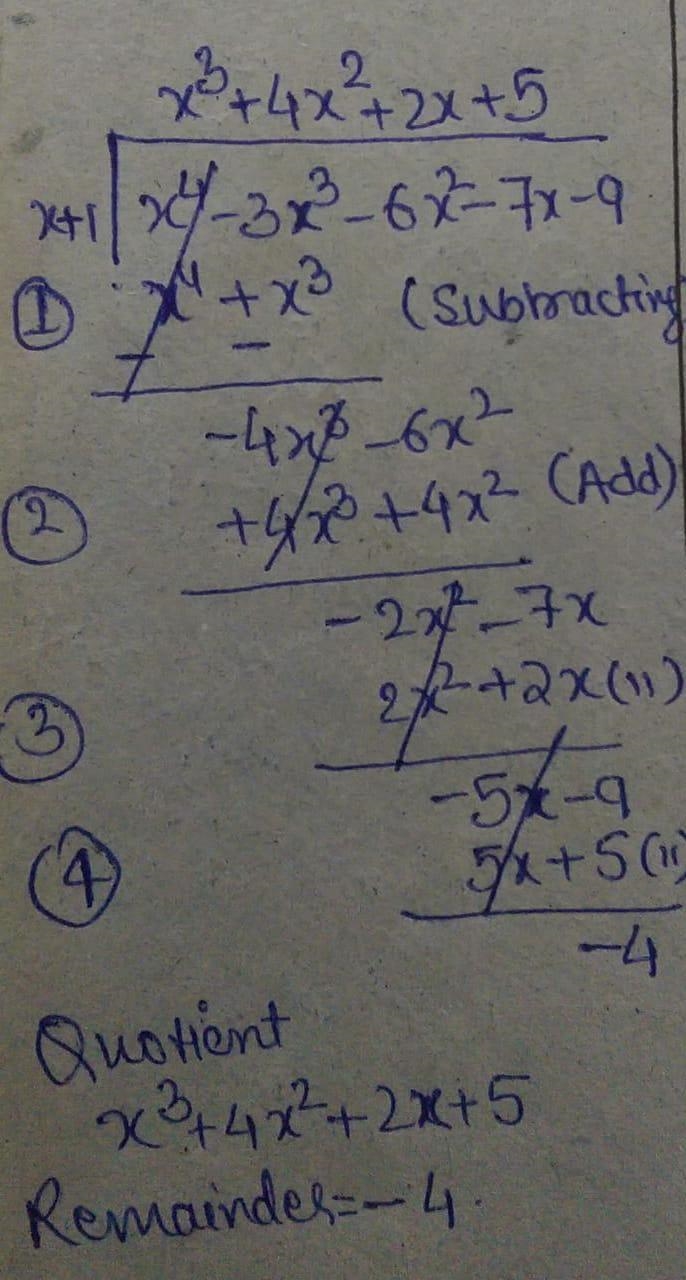 x³+4x²+2x+5
x+1 | x⁴-3x³-6x²-7x-9
① x⁴+x³ (Subtracting
- -
-4x³-6x²
② +4x³+4x² (Add)
-2x²-7x
③ 2x²+2x (")
-5x-9
④ 5x+5 ("
-4
Quotient
x³+4x²+2x+5
Remainder=-4.